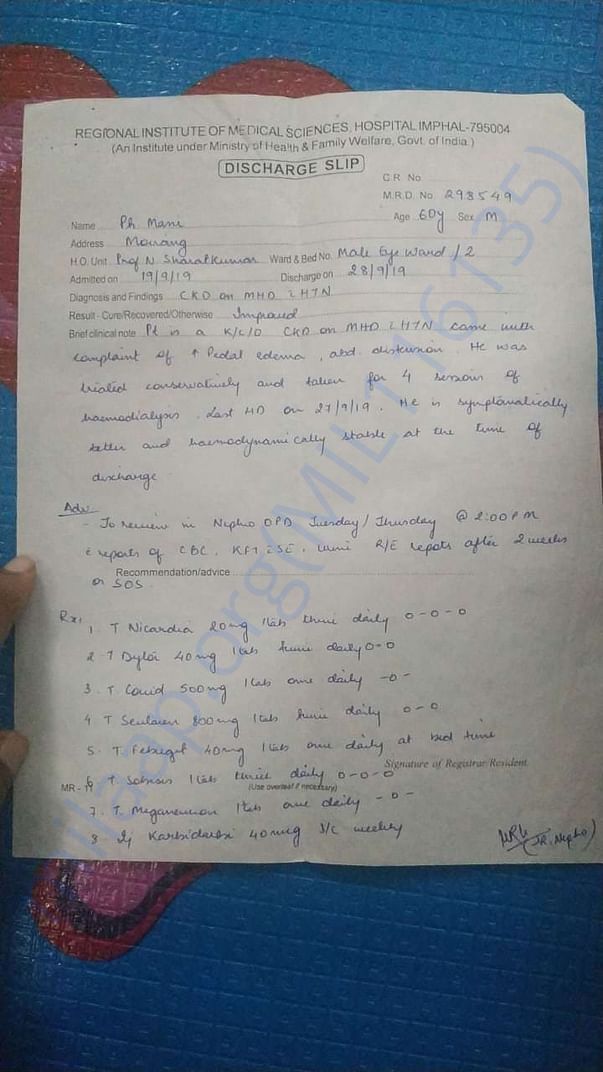 REGIONAL INSTITUTE OF MEDICAL SCIENCES, HOSPITAL IMPHAL-795004
(An Institute under Ministry of Health & Family Welfare, Govt. of India)
DISCHARGE SLIP
C.R. No
M.R.D. No. 298549
Name Ph Mani Age 60y Sex M
Address Moirang
H.O. Unit Prof N. Sharatkumar Ward & Bed No. Male Eye Ward / 2
Admitted on 19/9/19 Discharge on 28/9/19
Diagnosis and Findings CKD on MHD c̄ HTN
Result - Cure/Recovered/Otherwise Improved
Brief clinical note Pt is a K/C/O CKD on MHD c̄ HTN came with
complaint of ↑ Pedal edema, abd. distension. He was
treated conservatively and taken for 4 session of
haemodialysis. Last HD on 27/9/19. He is symptomatically
better and haemodynamically stable at the time of
discharge
Adv
- To review in Nephro OPD Tuesday / Thursday @ 2:00 PM
c̄ reports of CBC, KFT, SE, urine R/E repots after 2 weeks
Recommendation/advice
or SOS.
Rx:
1. T Nicardia 20mg 1tab thrice daily 0-0-0
2. T Dytor 40mg 1tab twice daily 0-0
3. T. 500mg 1tab one daily -0-
4 T 800mg 1tab twice daily 0-0
5. T. Febuget 40mg 1tab one daily at bed time
Signature of Registrar/Resident
6 T 1tab thrice daily 0-0-0
MR - 19 (Use overleaf if necessary)
7. T. 1tab one daily -0-
8. Inj 40mcg S/C weekly
(JR. Nephro)
milaap.org(MIL116135)